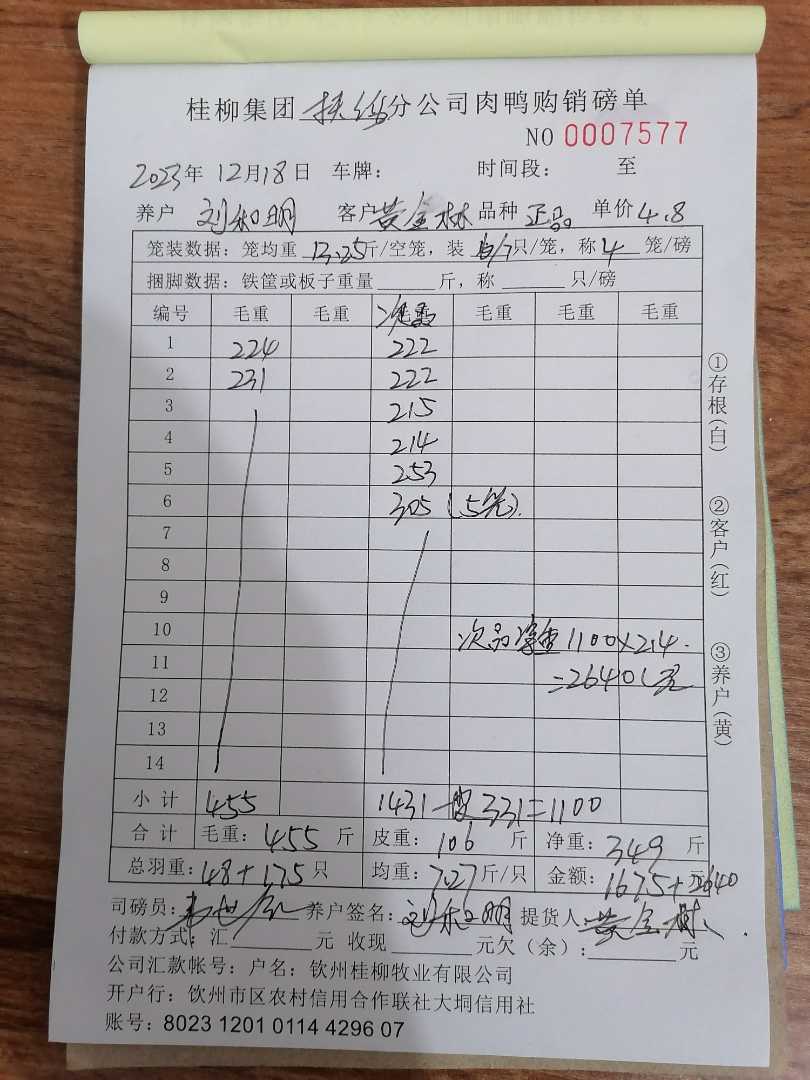 桂柳集团 分公司肉鸭购销磅单
NO 0007577
2023年 12月18日 车牌： 时间段： 至
养户 刘和明 客户 黄金林 品种 正品 单价 4.8
笼装数据：笼均重 13.25斤/空笼，装 6/7只/笼，称 4 笼/磅
捆脚数据：铁筐或板子重量 斤，称 只/磅
编号 毛重 毛重 毛重 毛重 毛重
1 224 222
2 231 222
3 215
4 214
5 253
6 305 (5笼)
7
8
9
10 次品净重1100×2.4
11 =2640(元
12
13
14
小计 455 1431-皮331=1100
合计 毛重：455 斤 皮重：106 斤 净重：349 斤
总羽重：48+175只 均重：7.27斤/只 金额：1675+2640
司磅员： 养户签名：刘和明 提货人 黄金林
付款方式：汇 元 收现 元欠（余）： 元
公司汇款帐号：户名：钦州桂柳牧业有限公司
开户行：钦州市区农村信用合作联社大垌信用社
账号：8023 1201 0114 4296 07
①存根(白)
②客户(红)
③养户(黄)